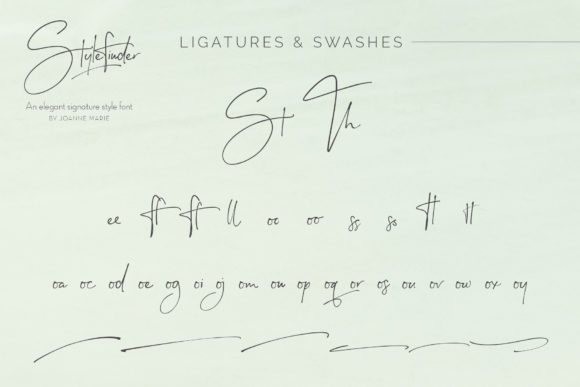 Stylefinder
An elegant signature style font
BY JOANNE MARIE
LIGATURES & SWASHES
St Th
ee ff ff ll oo oo ss ss tt tt
oa oc od oe og oi oj om on op oq or os ou ov ow ox oy